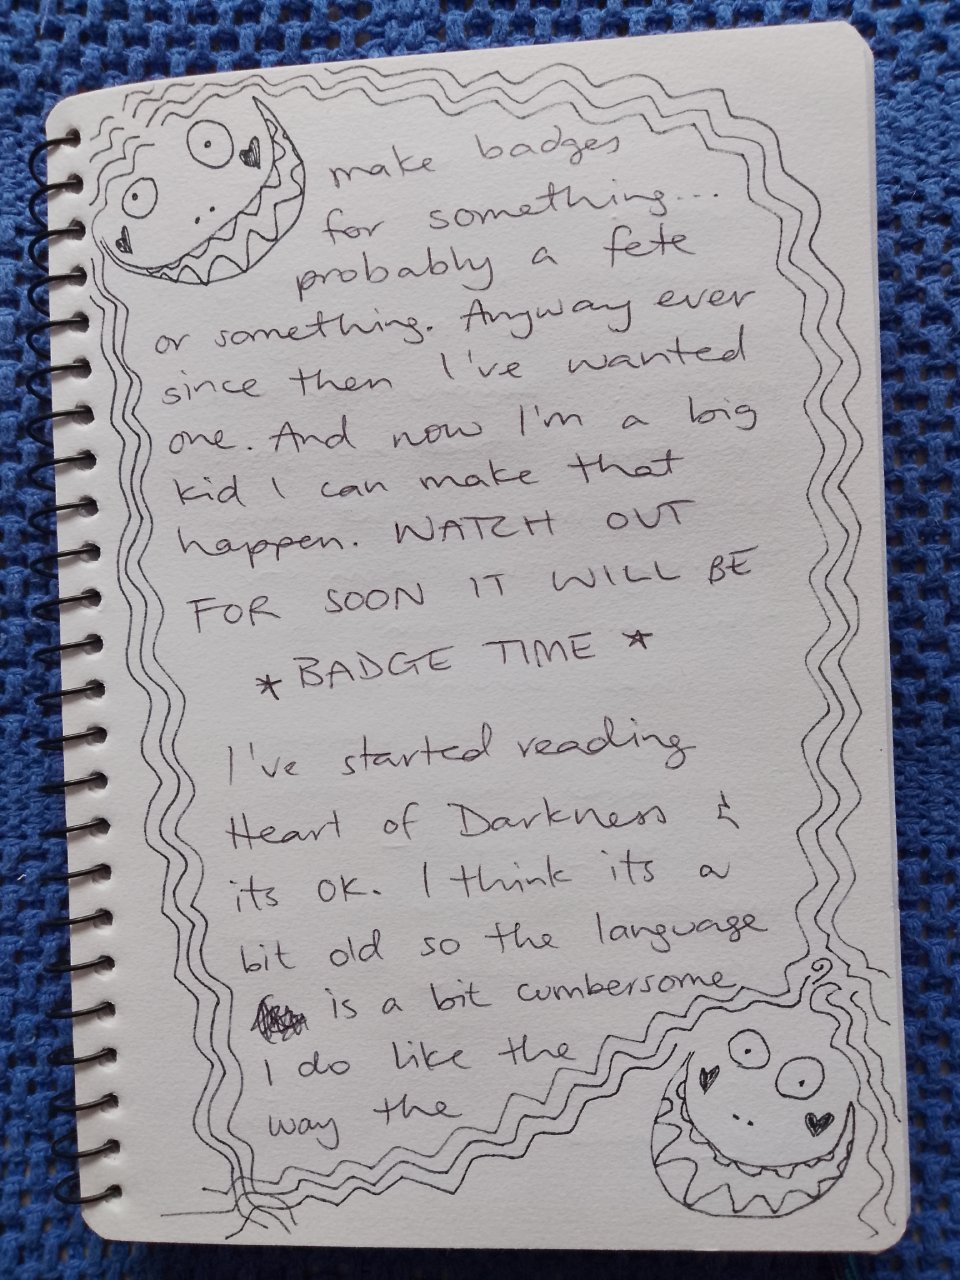 make badges
for something...
probably a fete
or something. Anyway ever
since then I've wanted
one. And now I'm a big
kid I can make that
happen. WATCH OUT
FOR SOON IT WILL BE
* BADGE TIME *
I've started reading
Heart of Darkness &
its OK. I think its a
bit old so the language
is a bit cumbersome
I do like the
way the